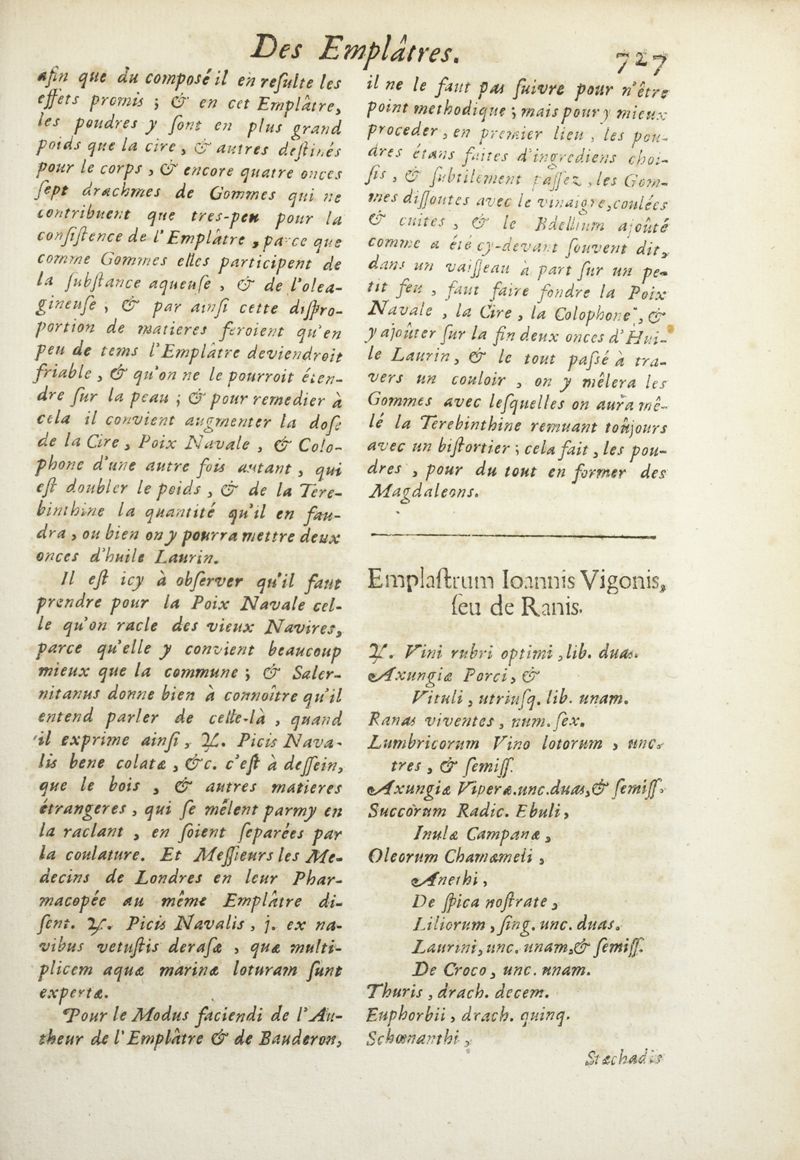 Des Emplâtres. 727
afin que du composé il en resulte les
effets promis ; & en cet Emplâtre,
les poudres y sont en plus grand
poids que la cire, & autres destinés
pour le corps, & encore quatre onces
sept drachmes de Gommes qui ne
contribuent que tres-peu pour la
consistence de l'Emplâtre, parce que
comme Gommes elles participent de
la substance aqueuse, & de l'olea-
gineuse, & par ainsi cette dispro-
portion de matieres feroient qu'en
peu de tems l'Emplâtre deviendroit
friable, & qu'on ne le pourroit éten-
dre sur la peau ; & pour remedier à
cela il convient augmenter la dose
de la Cire, Poix Navale, & Colo-
phone d'une autre fois autant, qui
est doubler le poids, & de la Tere-
binthine la quantité qu'il en fau-
dra, ou bien on y pourra mettre deux
onces d'huile Laurin.
Il est icy à observer qu'il faut
prendre pour la Poix Navale cel-
le qu'on racle des vieux Navires,
parce qu'elle y convient beaucoup
mieux que la commune ; & Saler-
nitanus donne bien à connoître qu'il
entend parler de celle-là, quand
il exprime ainsi, ℞. Picis Nava-
lis bene colatæ, &c. c'est à dessein,
que le bois, & autres matieres
étrangeres, qui se mêlent parmy en
la raclant, en soient separées par
la coulature. Et Messieurs les Me-
decins de Londres en leur Phar-
macopée au même Emplâtre di-
sent. ℞. Picis Navalis, j. ex na-
vibus vetustis derasæ, quæ multi-
plicem aquæ marinæ loturam sunt
expertæ.
Pour le Modus faciendi de l'Au-
theur de l'Emplâtre & de Bauderon,
il ne le faut pas suivre pour n'être
point methodique ; mais pour y mieux
proceder, en premier lieu, les pou-
dres étans faites d'ingrediens choi-
sis, & subtilement passez, les Gom-
mes dissoutes avec le vinaigre, coulées
& cuites, & le Bdellium ajoûté
comme a été cy-devant souvent dit,
dans un vaisseau à part sur un pe-
tit feu, faut faire fondre la Poix
Navale, la Cire, la Colophone, &
y ajoûter sur la fin deux onces d'Hui-
le Laurin, & le tout passé à tra-
vers un couloir, on y mêlera les
Gommes avec lesquelles on aura mê-
lé la Terebinthine remuant toûjours
avec un bistortier ; cela fait, les pou-
dres, pour du tout en former des
Magdaleons.
Emplastrum Ioannis Vigonis,
seu de Ranis.
℞. Vini rubri optimi, lib. duas.
Axungiæ Porci, &
Vituli, utriusq. lib. unam.
Ranas viventes, num. sex.
Lumbricorum Vino lotorum, unc.
tres, & semiss.
Axungiæ Viperæ. unc. duas, & semiss.
Succorum Radic. Ebuli,
Inulæ Campanæ,
Oleorum Chamæmeli,
Anethi,
De spica nostrate,
Liliorum, sing. unc. duas.
Laurini, unc. unam, & semiss.
De Croco, unc. unam.
Thuris, drach. decem.
Euphorbii, drach. quinq.
Schœnanthi,
Stæchadis